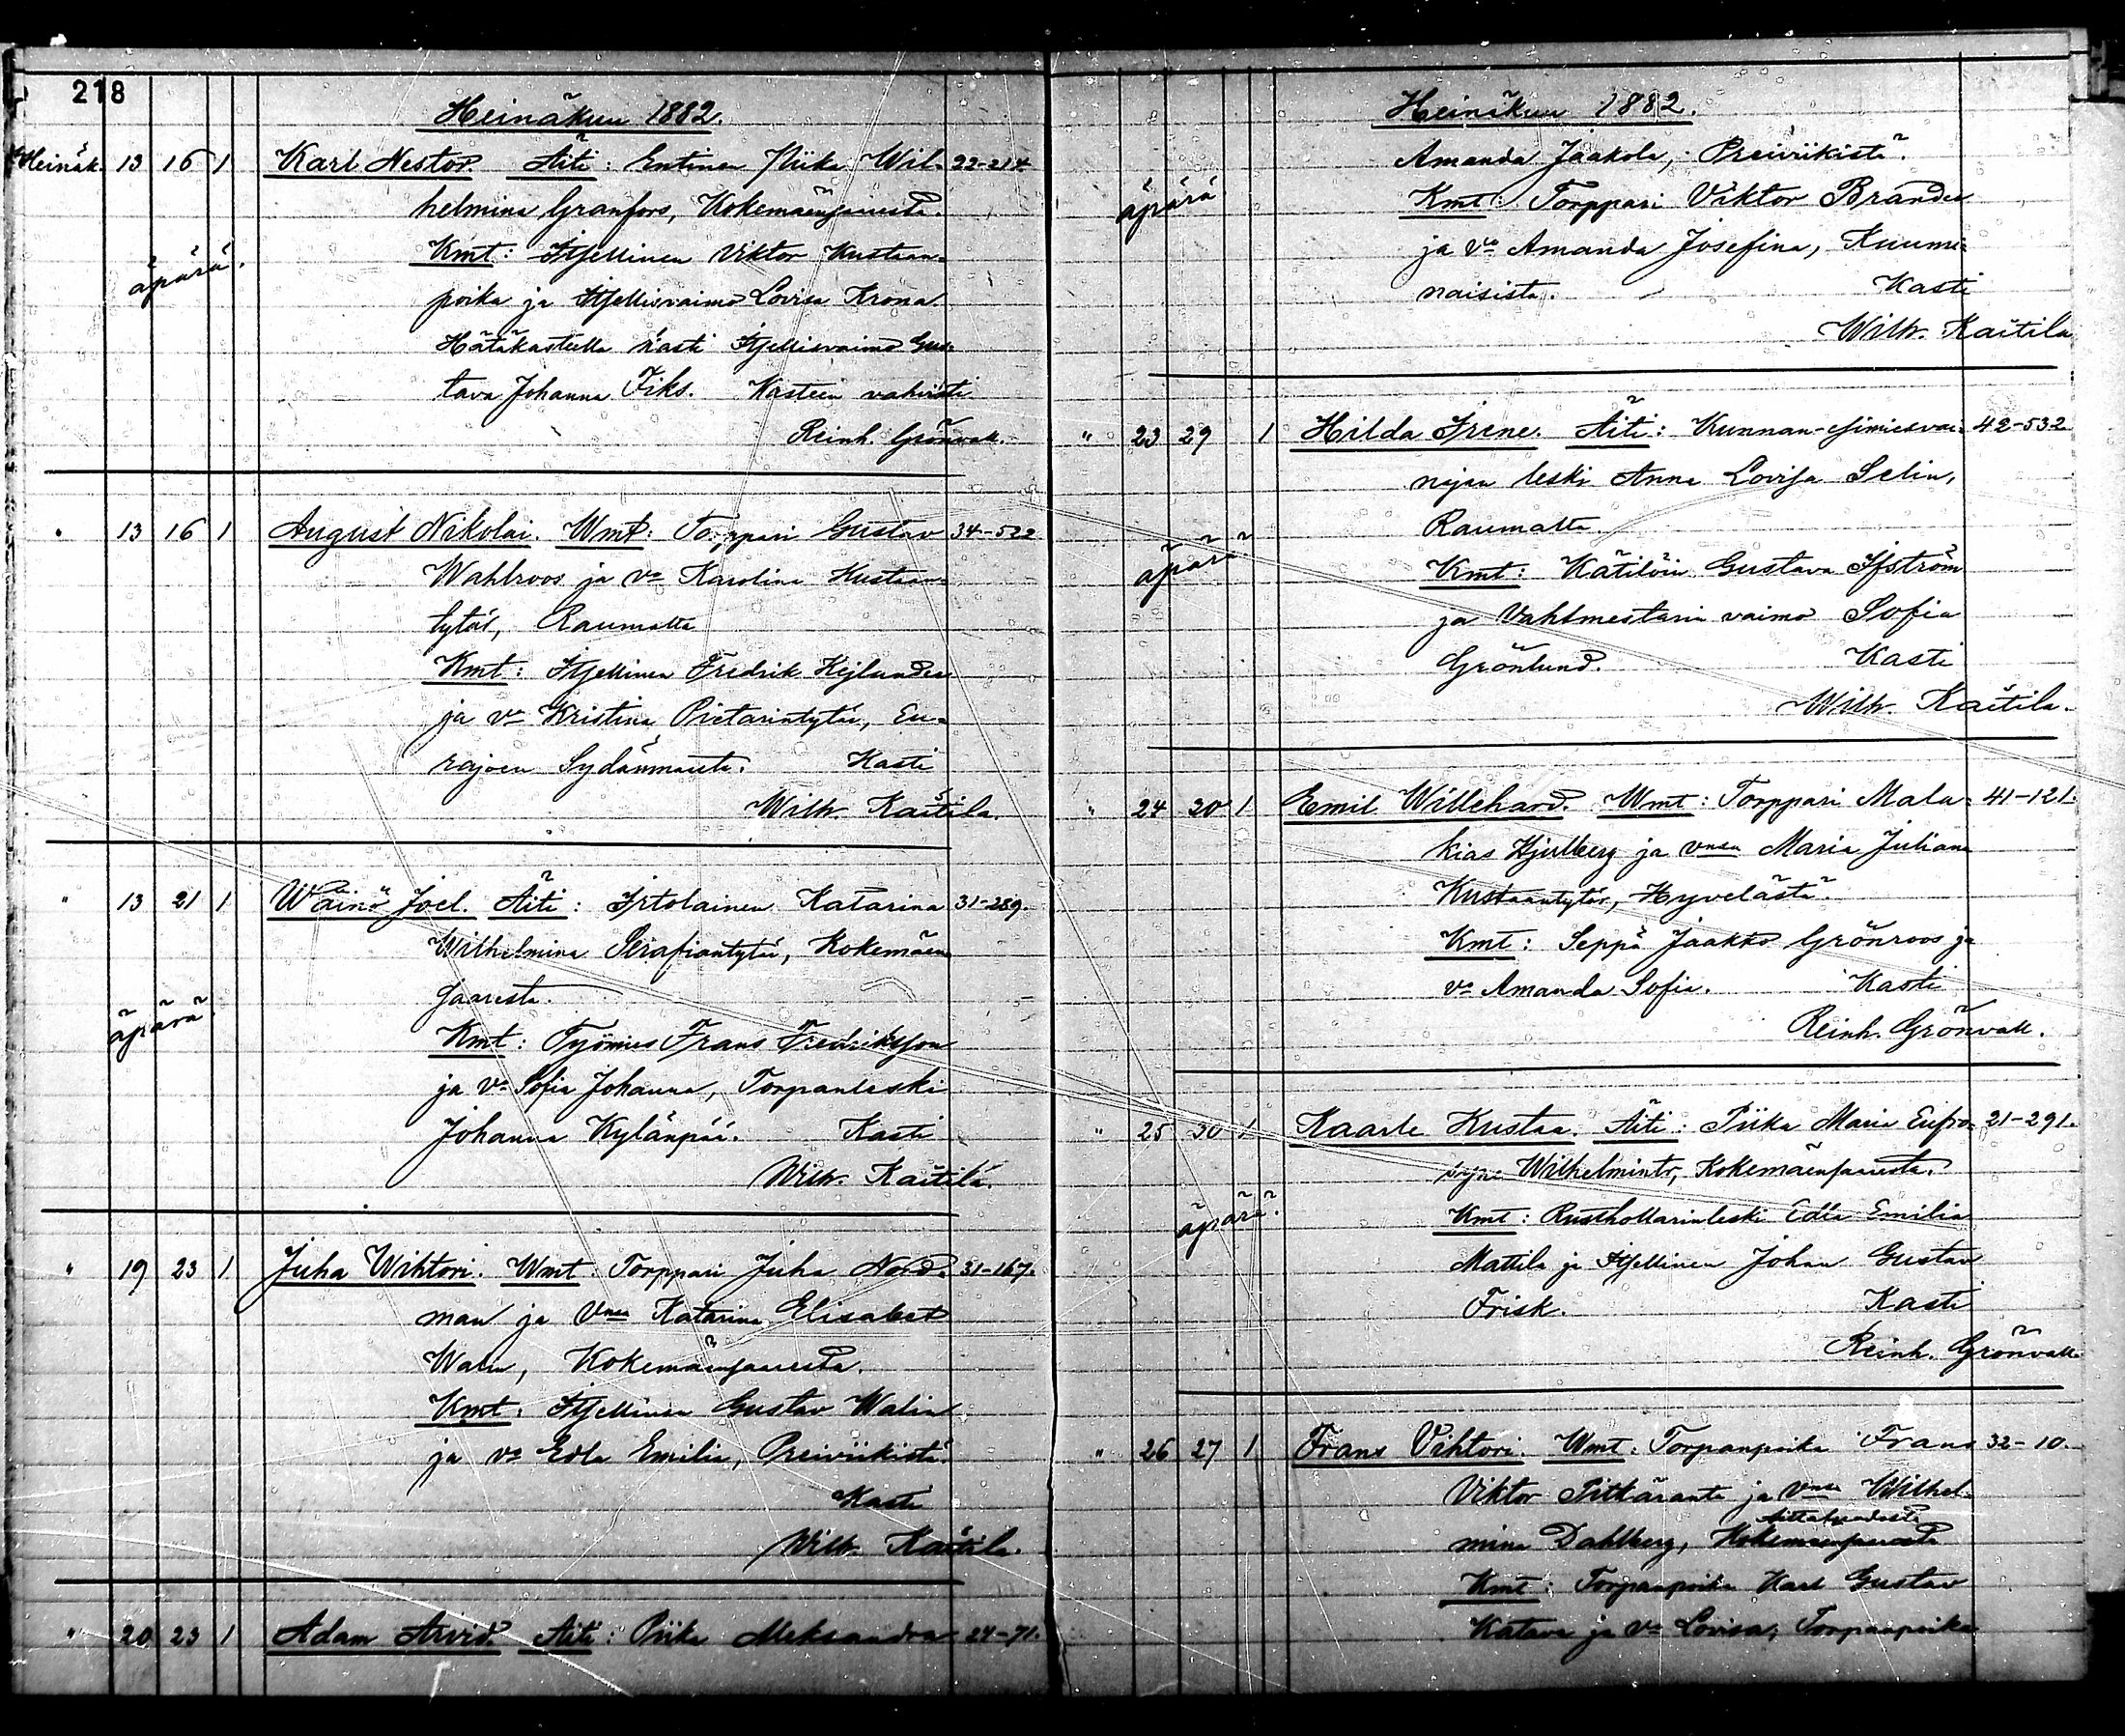 218
Heinäkuu 1882.
Heinäk. 13 16 1 Karl Nestor. Äiti: Entinen Piika Wil- 22-214
helmina Granfors, Kokemäensaaresta.
Kmt: Itsellinen Viktor Kustaan-
äpärä.
poika ja Itsellisvaimo Lovisa Krona.
Hätäkasteella kasti Itsellisvaimo Gus-
tava Johanna Fiks. Kasteen vahvisti
Reinh. Grönvall.
" 13 16 1 August Nikolai. Wmt: Torppari Gustav 34-522
Wahlroos ja vo Karolina Kustaan-
tytär, Raumalta
Kmt: Itsellinen Fredrik Kejlander
ja vo Kristina Pietarintytär, Eu-
rajoen Sydänmaalta. Kasti
Wilh. Kaitila.
" 13 21 1 Wäinö Joel. Äiti: Irtolainen Katarina 31-289.
Wilhelmina Serafiantytär, Kokemäen-
saaresta.
äpärä
Kmt: Työmies Frans Fredriksson
ja vo Sofia Johanna, Torpanleski
Johanna Kylänpää. Kasti
Wilh. Kaitila.
" 19 23 1 Juha Wihtori. Wmt: Torppari Juha Nord- 31-167.
man ja Vnsa Katarina Elisabet
Kokemäensaaresta.
Kmt: Itsellinen Gustav Walin
ja vo Edla Emilia, Preiviikistä.
Kasti
Wilh. Kaitila.
" 20 23 1 Adam Arvid. Äiti: Piika Aleksandra 24-71.
Heinäkuu 1882.
Amanda Jaakola, Preiviikistä.
äpärä
Kmt: Torppari Viktor Brander
ja vo Amanda Josefina, Kuumi-
naisista. Kasti
Wilh. Kaitila
" 23 29 1 Hilda Irene. Äiti: Kunnan-esimiesvai- 42-532
najan leski Anna Lovisa Selin,
Raumalta.
äpärä
Kmt: Kätilöin Gustava Ifström
ja Vahtmestarin vaimo Sofia
Grönlund. Kasti
Wilh. Kaitila.
" 24 30 1 Emil Willehard. Wmt: Torppari Mala- 41-121.
kias Hjulberg ja vnsa Maria Juliana
Kustaantytär, Hyvelästä.
Kmt: Seppä Jaakko Grönroos ja
vo Amanda Sofia. Kasti
Reinh. Grönvall.
" 25 30 1 Kaarle Kustaa. Äiti: Piika Maria Eufro- 21-291.
syne Wilhelmintr, Kokemäensaaresta.
äpärä.
Kmt: Rusthollarinleski Edla Emilia
Mattila ja Itsellinen Johan Gustav
Frisk. Kasti
Reinh. Grönvall.
" 26 27 1 Frans Vihtori. Wmt: Torpanpoika Frans 32-10.
Viktor Pitkäranta ja Vnsa Wilhel-
mina Dahlberg, Kokemäensaaresta
Kmt: Torpanpoika Karl Gustav
Katava ja vo Lovisa, Torpanpoika